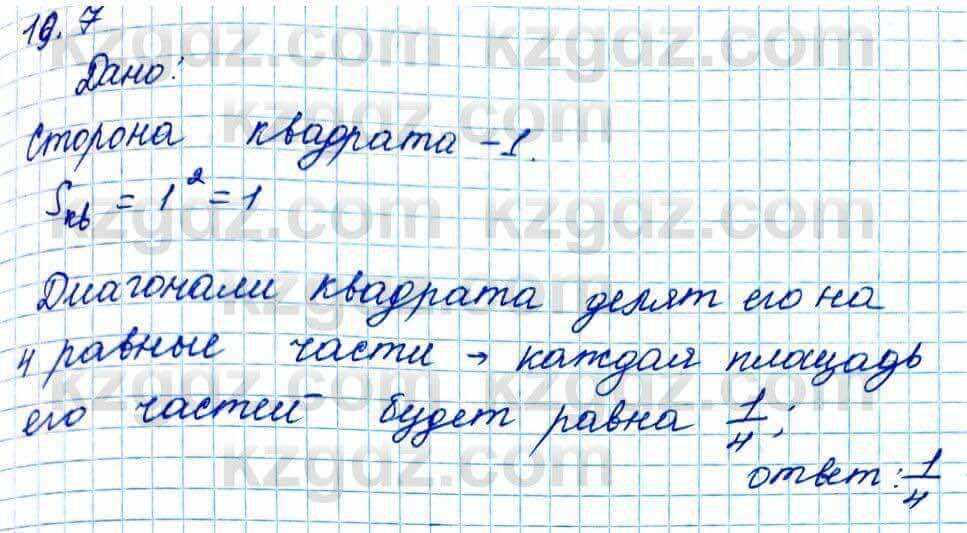 19.7
Дано:
Сторона квадрата - 1.
Sкв = 1² = 1
Диагонали квадрата делят его на
4 равные части → каждая площадь
его частей будет равна 1/4;
ответ: 1/4
kzgdz.com